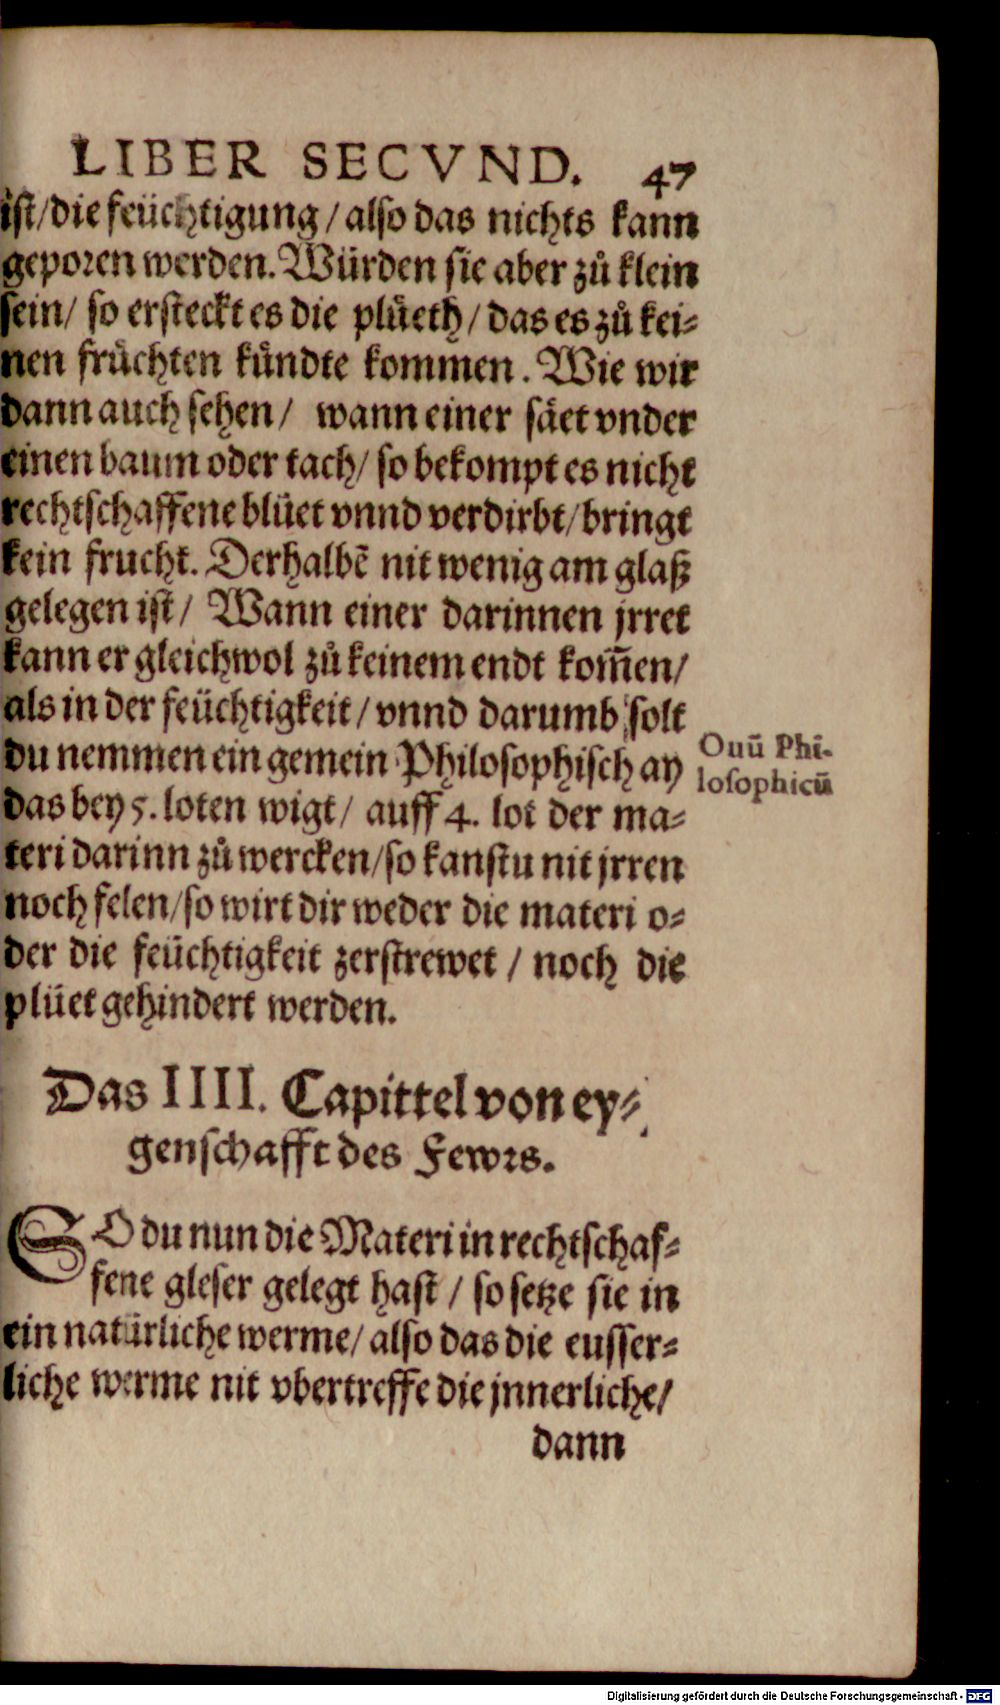 LIBER SECVND. 47
iſt/die feüchtigung/alſo das nichts kann
geporen werden. Würden ſie aber zů klein
ſein/ ſo erſteckt es die plüeth/das es zů kei⸗
nen früchten kündte kommen. Wie wir
dann auch ſehen/ wann einer ſäet vnder
einen baum oder tach/ſo bekompt es nicht
rechtſchaffene blüet vnnd verdirbt/bringt
kein frucht. Derhalbẽ nit wenig am glaß
gelegen iſt/ Wann einer darinnen jrret
kann er gleichwol zů keinem endt kom̃en/
als in der feüchtigkeit/vnnd darumb ſolt
du nemmen ein gemein Philoſophiſch ay
Ouũ Phi⸗
loſophicũ
das bey 5. loten wigt/ auff 4. lot der ma⸗
teri darinn zů wercken/ſo kanſtu nit jrren
noch felen/ſo wirt dir weder die materi o⸗
der die feüchtigkeit zerſtrewet/ noch die
plüet gehindert werden.
Das IIII. Capittel von ey⸗
genſchafft des Fewrs.
SO du nun die Materi in rechtſchaf⸗
fene gleſer gelegt haſt/ ſo ſetze ſie in
ein natürliche werme/alſo das die euſſer⸗
liche werme nit vbertreffe die jnnerliche/
dann
Digitalisierung gefördert durch die Deutsche Forschungsgemeinschaft - DFG